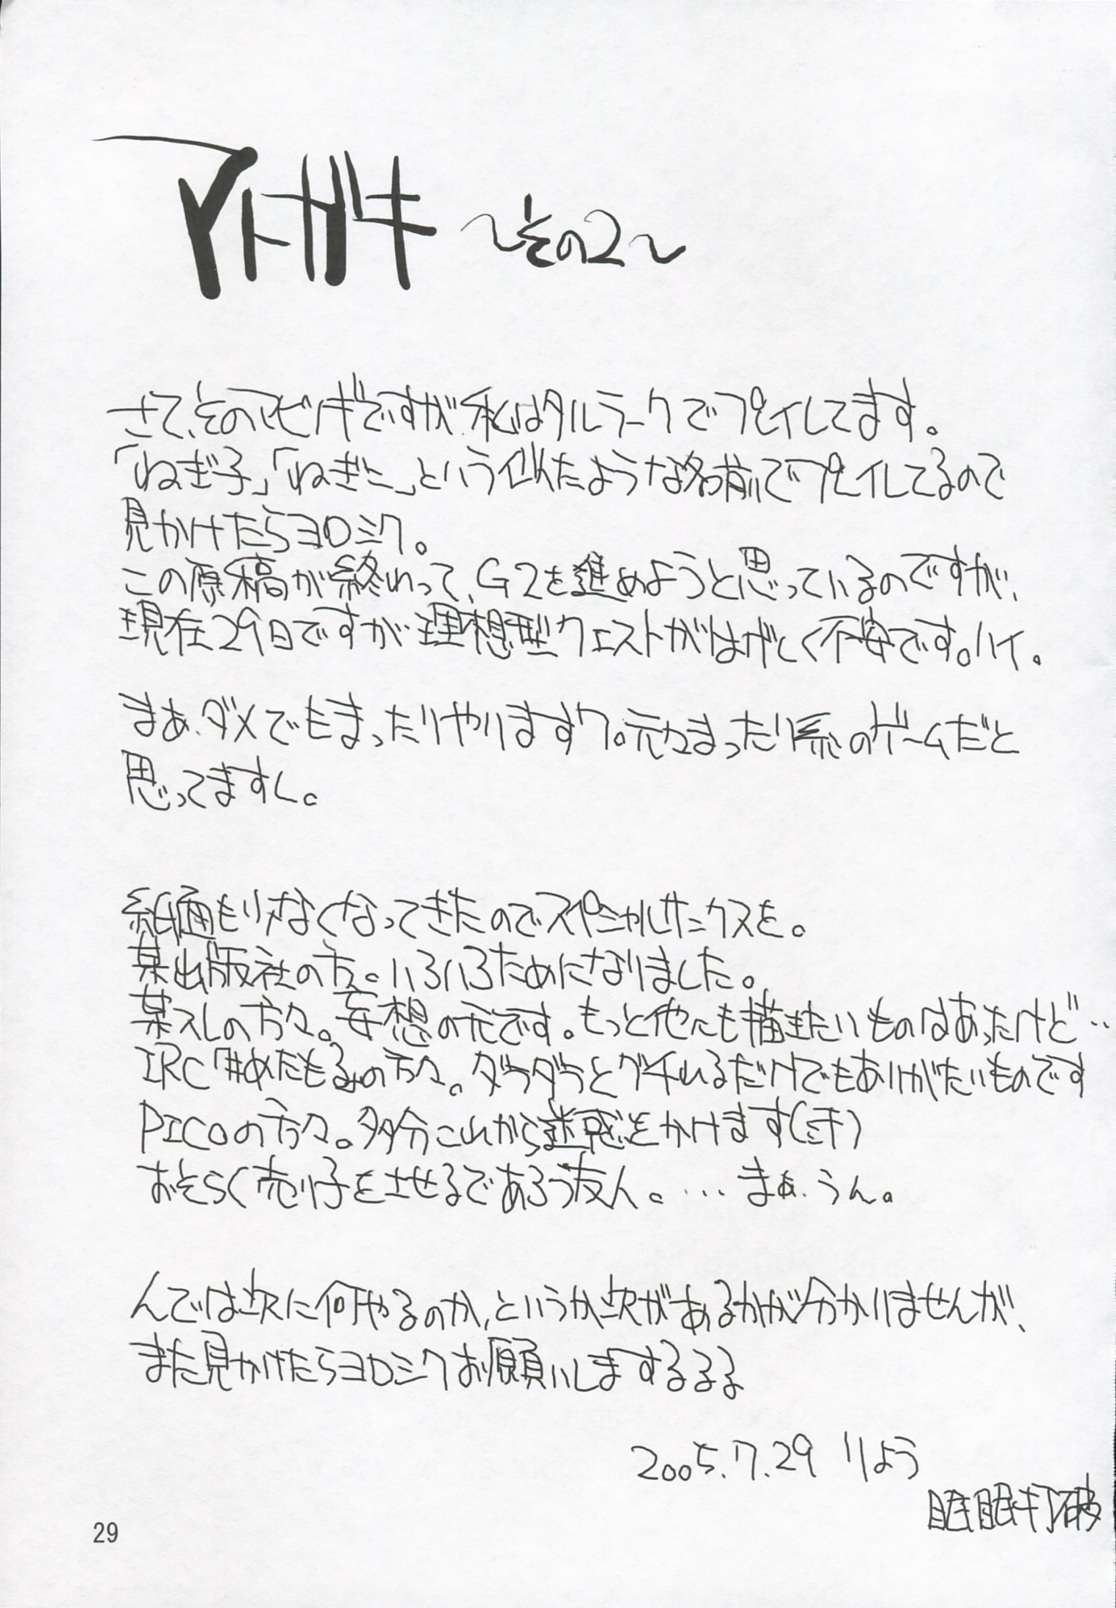 アトガキ ～その2～
さて、そのマビノギですが、私はタルラークでプレイしてます。
「ねぎ子」「ねぎこ」という似たような名前でプレイしてるので
見かけたらヨロシク。
この原稿が終わって、G2を進めようと思っているのですが、
現在29日ですが理想型クエストがはげしく不安です。ハイ。
まぁ、ダメでもまったりやりますワ。元々まったり系のゲームだと
思ってますし。
紙面もリなくなってきたのでスペシャルサンクスを。
某出版社の方。いろいろためになりました。
某スレの方々。妄想の元です。もっと他にも描きたいものはあったけど‥
IRC「#めたもるみの方々。ダラダラとグチれるだけでもありがたいものです
PICOの方々。多分これから迷惑をかけます(汗)
おそらく売り子をさせるであろう友人。…まぁ、うん。
んでは次に何やるのか、というか次があるかが分かりませんが、
また見かけたらヨロシクお願いしまするるる
2005.7.29 りょう
眠眠打破
29